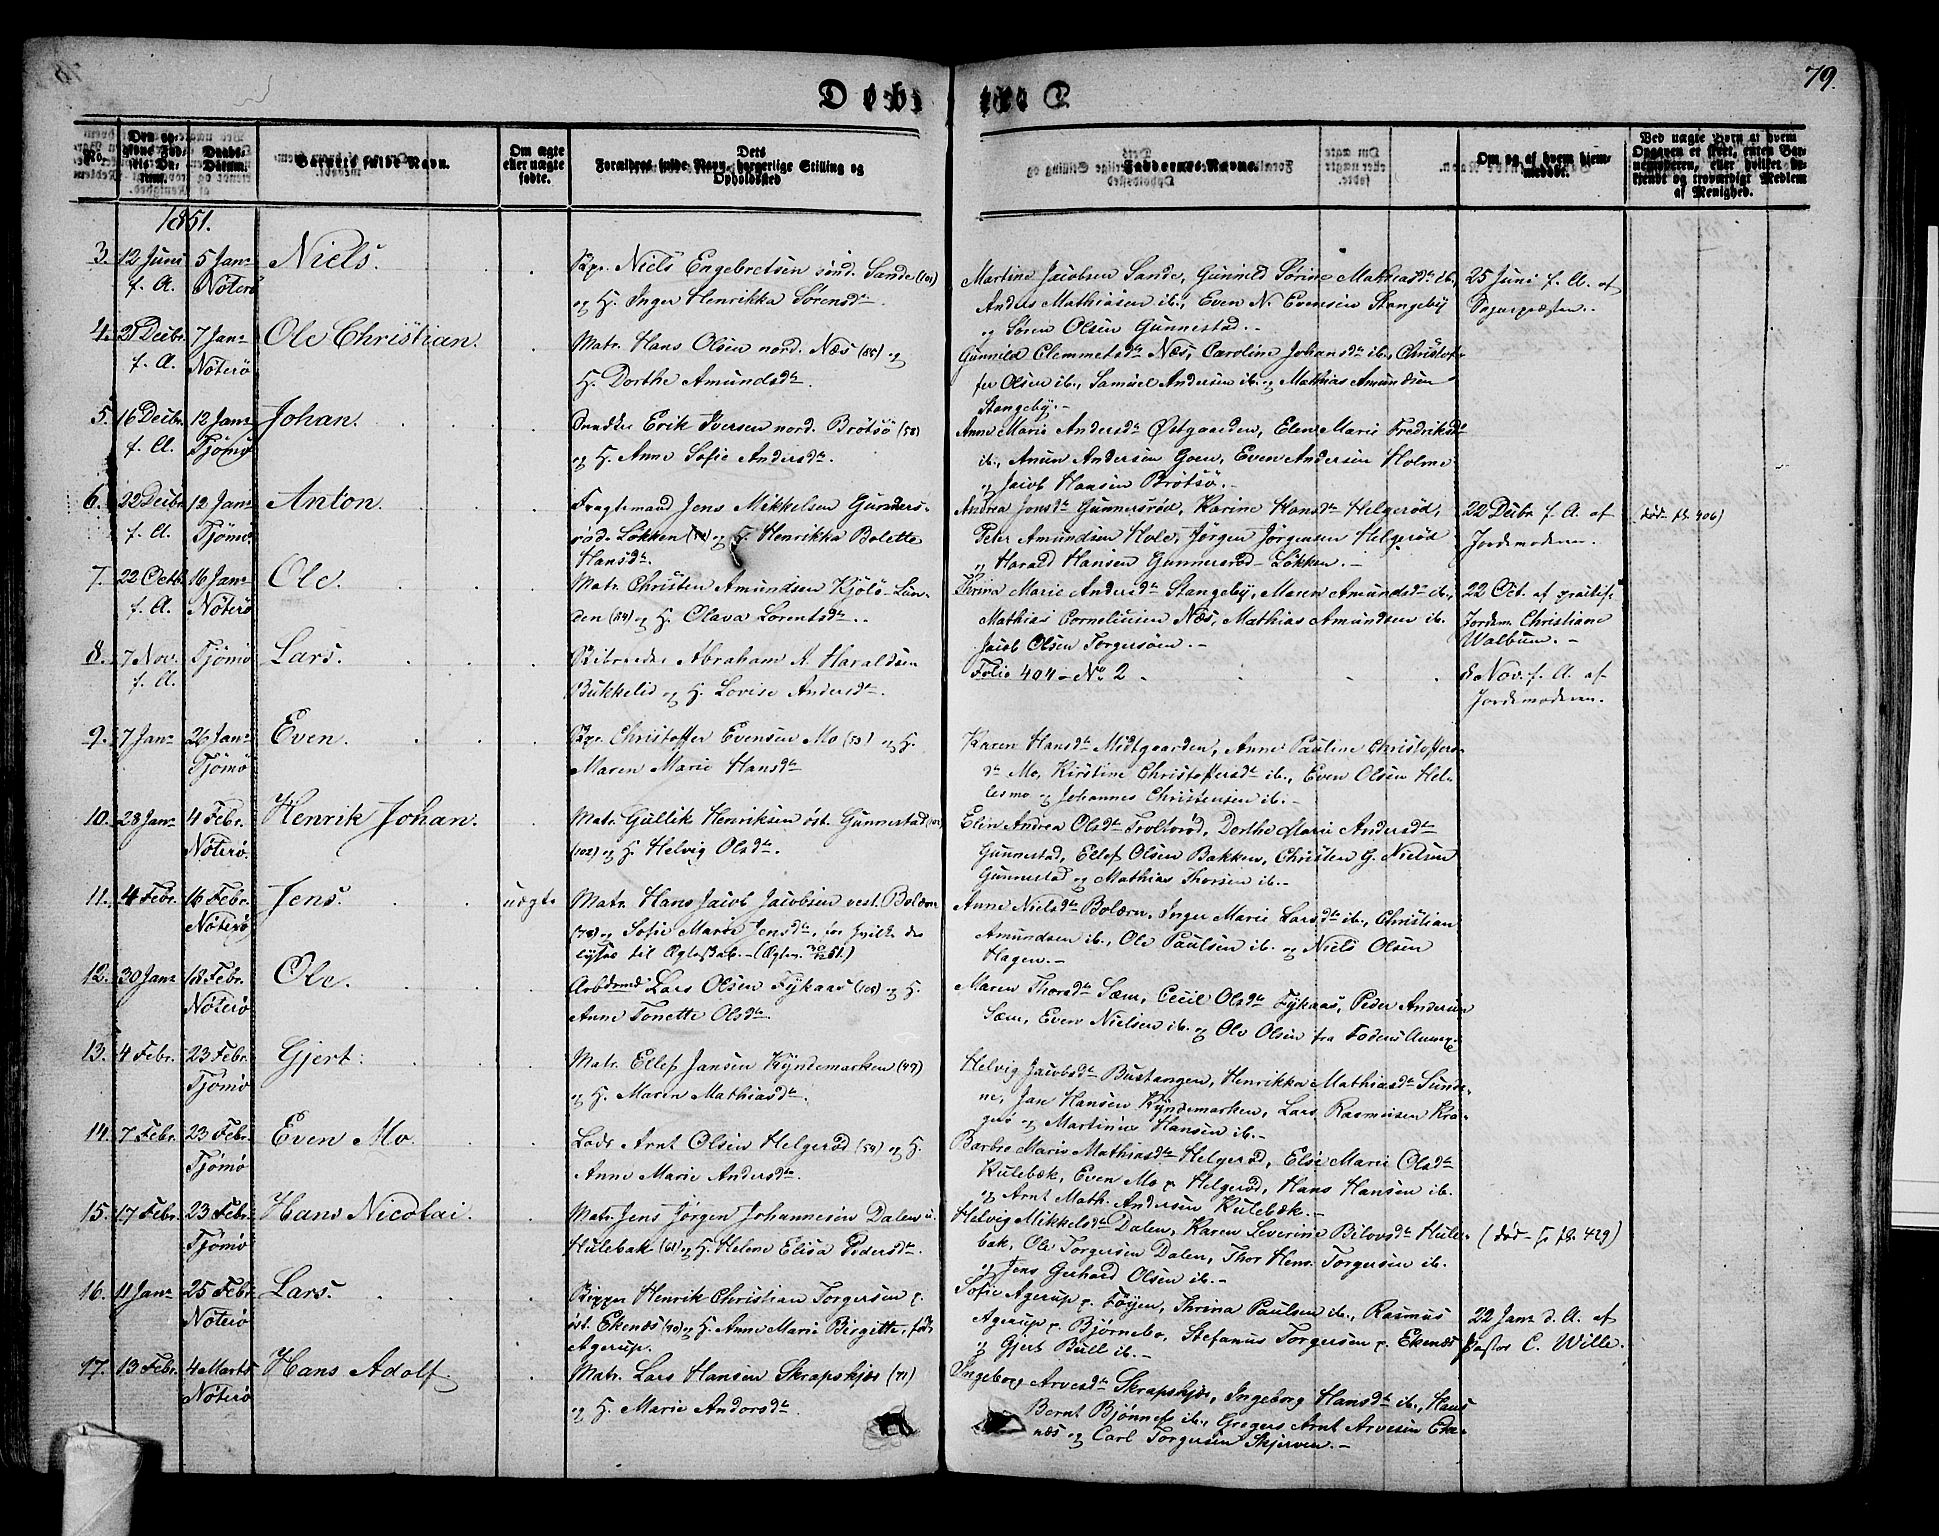 79.
Døbte
No.
Den og-
Daabs-
Datum.
Barnets fulde Navn.
Om ægte
eller uægte
fødte.
Dets
Forældres fulde Navn, borgerlige Stilling og
Opholdssted
Faddernes Navne.
Om og af hvem hjem-
medøbt.
Ved uægte Børn at hvem
Opgaven er skeet, enten Bar-
nemoderen, eller hvilket be-
kjendt og troværdigt Medlem
af Menighed.
1851.
3. 12 Juni f. A. 5 Janr Nøterø Niels.
Niels Engebretsen sønd. Sande (101)
og H. Inger Henrikka Sørensdtr.
Martine Jacobsen Sande, Gunnild Sørine Mathiasdtr ib.
Anders Mathiasen ib., Even N. Evensen Stangeby
og Søren Olsen Gunnestad.-
25 Juni f. A. af
Sognepræsten.
4. 21 Decbr. f. A. 7 Janr Nøterø Ole Christian.
Matr. Hans Olsen nord. Næs (85) og
H. Dorthe Amundsdtr.
Gunnild Clemmetsdtr Næs, Caroline Johansdtr ib., Christof-
fer Olsen ib., Samuel Andersen ib. og Mathias Amundsen
Stangeby.-
5. 16 Decbr. f. A. 12 Janr Tjømø Johan.
Erik Iversen nord. Brøtsø (58)
og H. Anne Sofie Andersdtr.
Anne Marie Andersdtr Østgaarden, Elen Marie Fredriksdtr
ib., Anun Andersen Goen, Even Andersen Holme
og Jacob Hansen Brøtsø.-
6. 22 Decbr. f. A. 12 Janr Tjømø Anton.
Fragtemand Jens Mikkelsen Gunners-
rød-Løkken og H. Henrikka Bolette
Hansdtr.
Andrea Jonsdtr Gunnersrød, Karine Hansdtr Helgerød,
Peter Amundsen Hole, Jørgen Jørgensen Helgerød
og Harald Hansen Gunnersrød-Løkken.-
22 Decbr. f. A. af
Jordemoderen.
(død fl. 406)
7. 22 Octb. f. A. 16 Janr Nøterø Ole.
Matr. Christen Amundsen Kjølø-Lun-
den (84) og H. Olava Lorentsdtr.
Thrina Marie Andersdtr Stangeby, Maren Amundsdtr ib.,
Mathias Cornelinsen Næs, Mathias Amundsen ib.
Jacob Olsen Torgersøen.-
22 Oct. af
Jordem. Christiane
Walbum.-
8. 7 Nov. f. A. Tjømø Lars.
Abraham A. Haraldsen
Bukkelid og H. Lovise Andersdtr.
Folio 404 - No 2
8 Nov. f. A. af
Jordemoderen.
9. 7 Janr 26 Janr Tjømø Even.
Christoffer Evensen Mo (53) og H.
Maren Marie Hansdtr
Karen Hansdtr Midtgaarden, Anne Pauline Christoffers-
dtr Mo, Kirstine Christoffersdtr ib., Even Olsen Hel-
lesmo og Johannes Christensen ib.-
10. 28 Janr 4 Febr. Nøterø. Henrik Johan.
Matr. Gullik Henriksen øst. Gunnestad
(102) og H. Helvig Olsdtr.
Elen Andrea Olsdtr Trolterød, Dorthe Marie Andersdtr
Gunnestad, Ellef Olsen Bakken, Christen G. Nielsen
Gunnestad og Mathias Thorsen ib.-
11. 4 Febr. 16 Febr. Nøterø Jens. uægte
Matr. Hans Jacob Jacobsen vest. Bolærn
(78) og Sofie Marie Jensdtr, for hvilke der
lyses til Ægteskab.-
Anne Nielsdtr Bolærn, Inger Marie Larsdtr ib., Christian
Amundsen ib., Ole Paulsen ib. og Niels Olsen
Hagen.-
12. 30 Janr 18 Febr. Nøterø Ole.
Arbdsmd Lars Olsen Fykaas (108) og H.
Anne Tonette Olsdtr.
Maren Thorsdtr Sæm, Cecil Olsdtr Fykaas, Peder Andersen
Sæm, Even Nielsen ib. og Ole Olsen fra Foderis
13. 4 Febr. 23 Febr. Tjømø Gjert.
Matr. Ellef Jansen Kyndemarken (47)
og H. Maren Mathiasdtr.
Helvig Jacobsdtr Bustangen, Henrikka Mathiasdtr Sunde-
ne, Jan Hansen Kyndemarken, Lars Rasmusen Kra-
gerø og Martinus Hansen ib.-
14. 7 Febr. 23 Febr. Tjømø Even Mo.
Lods Arnt Olsen Helgerød (54) og H.
Anne Marie Andersdtr.
Barbro Marie Mathiasdtr Helgerød, Else Marie Olsdtr
Kulebæk, Even Mo p. Helgerød, Hans Hansen ib.
og Arnt Math. Andersen Kulebæk.-
15. 17 Febr. 23 Febr. Tjømø Hans Nicolai.
Matr. Jens Jørgen Johannesen Dalen u.
Hulebak (61) og H. Helene Elisa Pedersdtr.
Helvig Mikkelsdtr Dalen, Karen Severine Bilovsdtr Hule-
bak, Ole Torgersen Dalen, Thor Hens. Torgersen ib.
og Jens Gerhard Olsen ib.-
(død fl. 429)
16. 11 Janr 25 Febr. Nøterø Lars.
Henrik Christian Torgersen p.
øst. Ekenæs (90) og H. Anne Marie Birgitte, fød
Agerup.
Sofie Agerup p. Føyen, Thrina Paulsen ib., Rasmus
Agerup p. Bjørnebo, Stefanus Torgersen p. Ekenæs
og Gjert Bull ib.-
22 Janr d. A. af
Pastor C. Wille.
17. 13 Febr. 4 Marts Nøterø Hans Adolf.
Matr. Lars Hansen Skrapskjær (71)
og H. Marie Andersdtr.
Ingeborg Arvesdtr Skrapskjær, Ingeborg Hansdtr ib., Hans
Bernt Bjønnes ib., Gregers Arnt Arvesen Eke-
næs og Carl Torgersen Skjerven.-